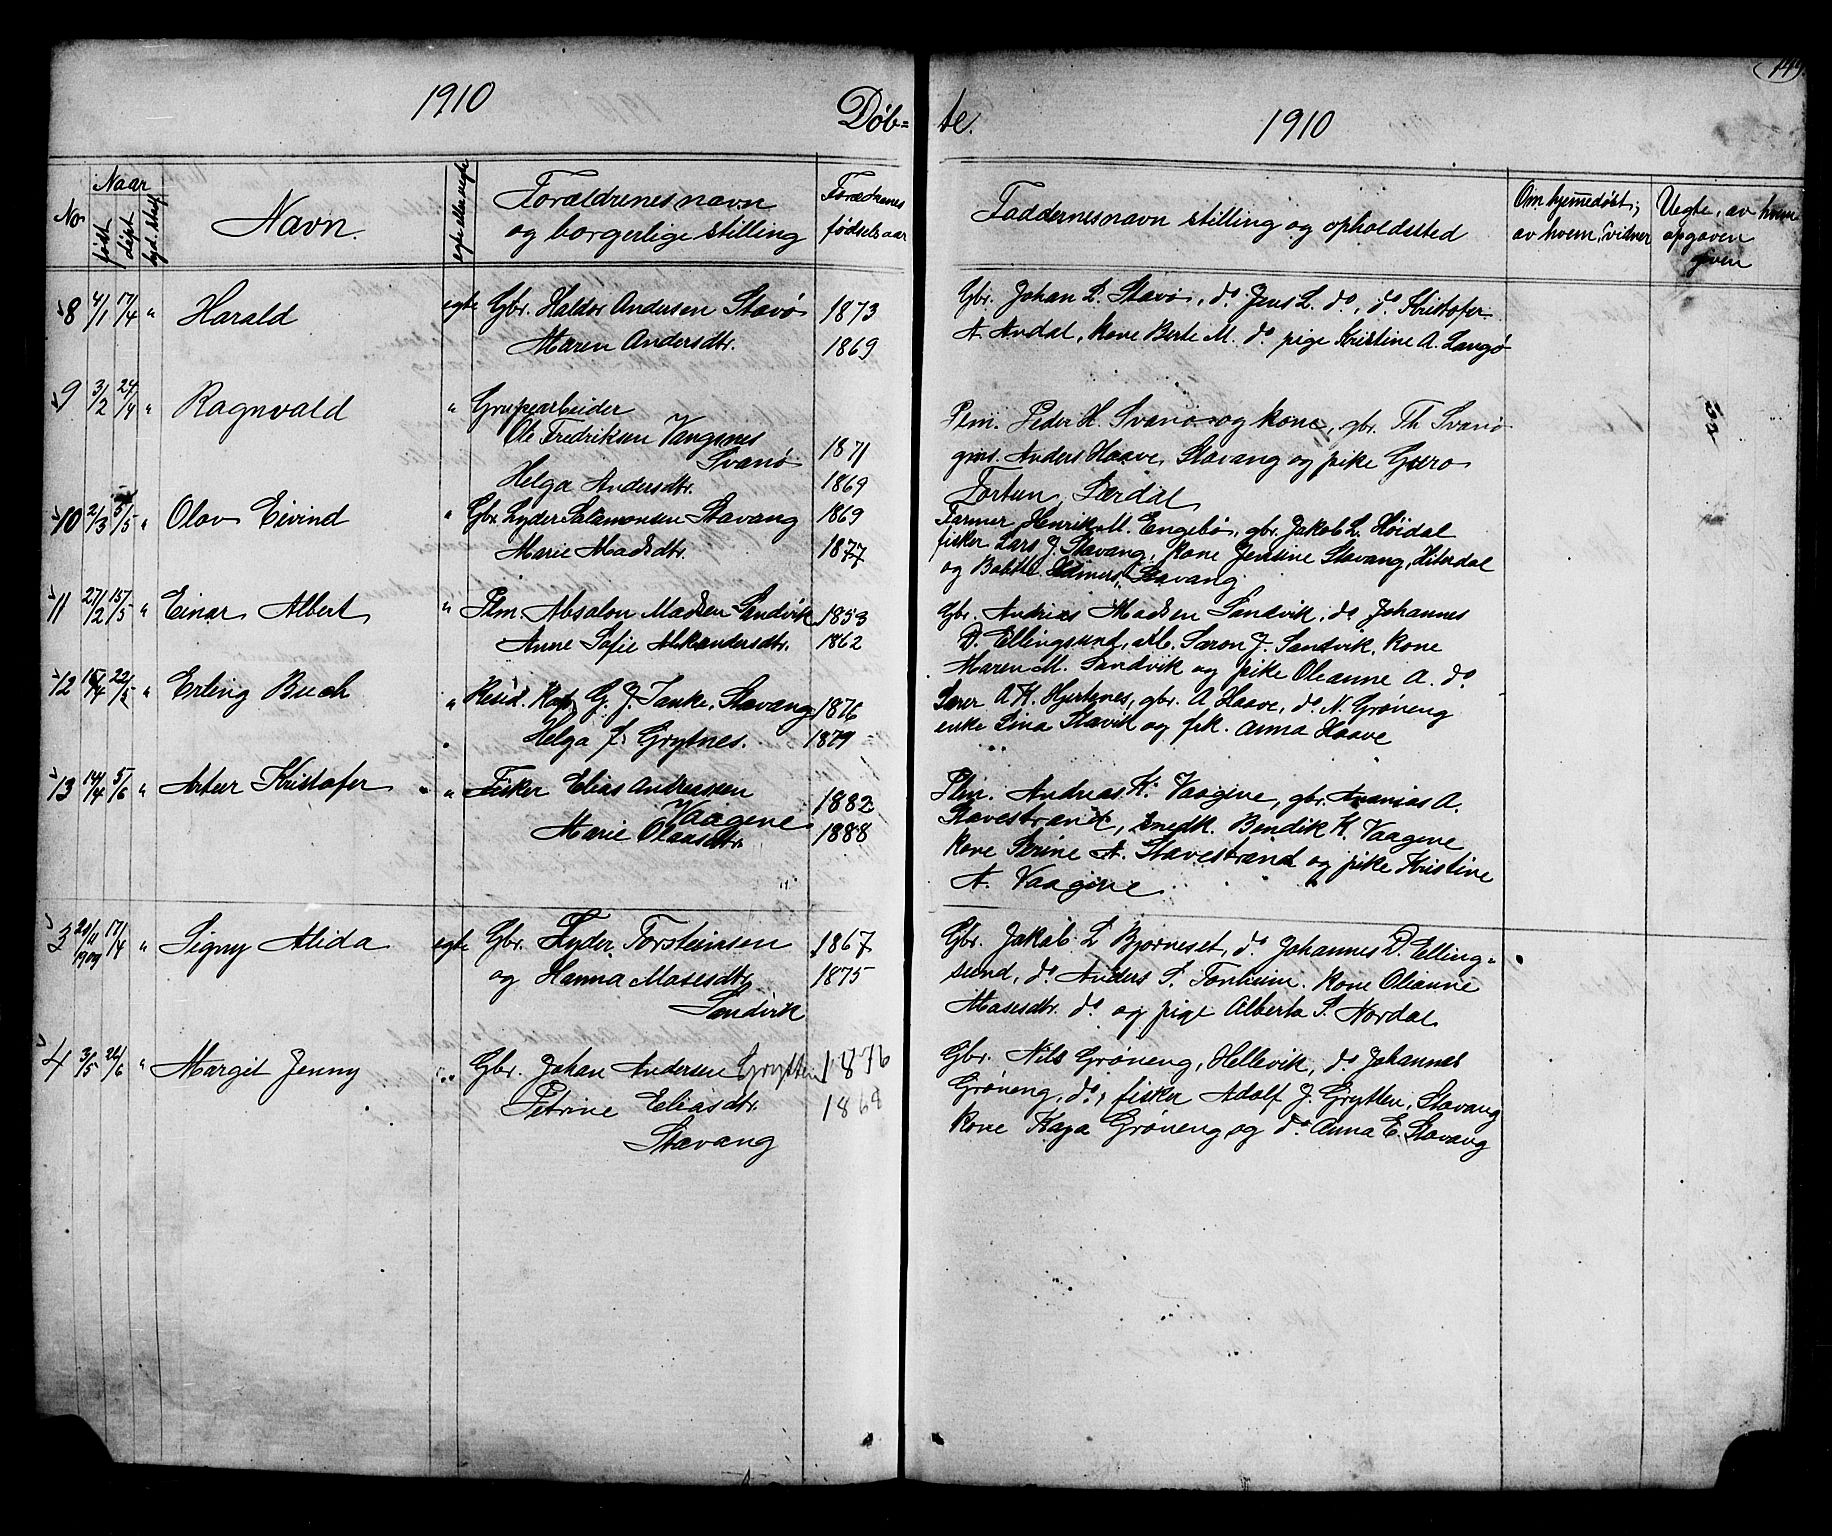 149.
1910 Døb=
te. 1910
No
Naar
født
døpt
Navn.
egte eller uegte
Forældrenes navn
og borgerlige stilling
Forældrenes
fødselsaar
Faddernes navn stilling og opholdssted
Om hjemmedøbt;
av hvem, vidner
Uegte, av hvem
opgaven
given
8 4/1 17/4 " Harald egte Gbr. Haldor Andersen Stavø 1873
Maren Andersdtr. 1869
Gbr. Johan L. Stavø, do Jens L. do, do Kristofer
A. Andal, kone Berte M. do pige Kristine A. Langø
9 3/2 24/4 " Ragnvald " Grupearbeider
Ole Fredriksen Vangsnes
Svanø 1871
Helga Andersdtr. 1869
Plm. Peder H. Svanø og kone, gbr. Th. Svanø
Anders Haave, Stavang og pike Guro
Fortun, Lærdal
10 2/3 5/5 " Olav Eivind " Gbr. Lyder Salamonsen Stavang 1869
Marie Madsdtr. 1877
Farmer Henrik M. Engebø, gbr. Jakob L. Høidal
fisker Lars J. Stavang, kone Jensine Stavang, Hiterdal
og Stavang
11 27/2 15/5 " Einar Albert " Plm. Absalon Madsen Sandvik 1853
Anne Sofie Aleksandersdtr. 1862
Gbr. Andrias Madsen Sandvik, do Johannes
D. Ellingsund, J. Sandvik, kone
Maren M. Sandvik og pike Oleanne A. do
12 15/4 22/5 " Erling Buch " Resid. Kap. G. J. Tanke, Stavang 1876
" Helga J. Grytnes. 1879
Lærer A. K. Hjertenes, gbr. A Haave, do N. Grøneng
enke Sina Stavik og frk. Anna Haave
13 14/4 5/6 " Artur Kristofer " Fisker Elias Andreassen
Vaagene 1882
Marie Olausdtr. 1888
Plm. Andreas K. Vaagene, gbr. Ananias A.
Stavestrand, snedk. Bendik K. Vaagene
kone Serine A. Stavestrand og pike Kristine
A. Vaagene
3 20/11 1909 17/4 " Signy Alida egte Gbr. Lyder Torsteinsen 1867
og Hanna Mosesdtr. 1875
Sandvik
Gbr. Jakob L Bjørneset, do Johannes D. Elling=
sund, do Anders S. Tonheim. Kone Olianne
Mosesdtr. do og pige Alberta S. Nordal
4 3/5 26/6 " Margit Jenny " Gbr. Johan Andersen Grytten 1876
Petrine Eliasdtr. 1868
Stavang
Gbr. Nils Grøneng, Hellevik, do Johannes
Grøneng, do, fisker Adolf J. Grytten, Stavang
kone Kaja Grøneng og do. Anna E. Stavang